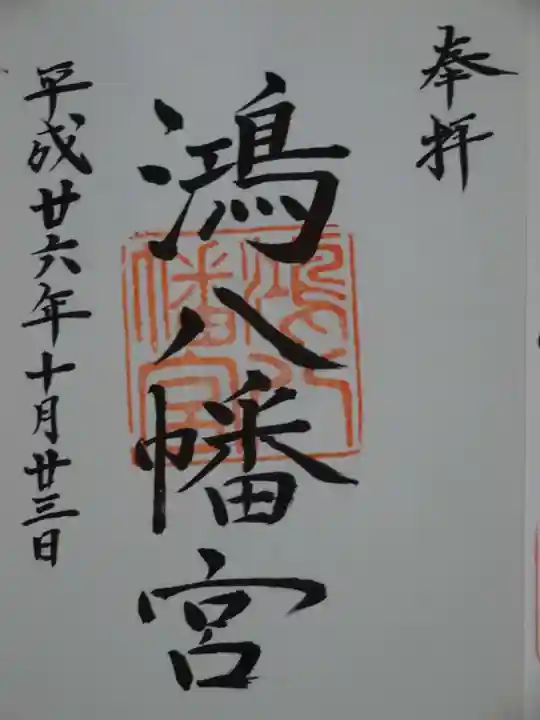 奉拝
鴻八幡宮
鴻八幡宮
平成廿六年十月廿三日